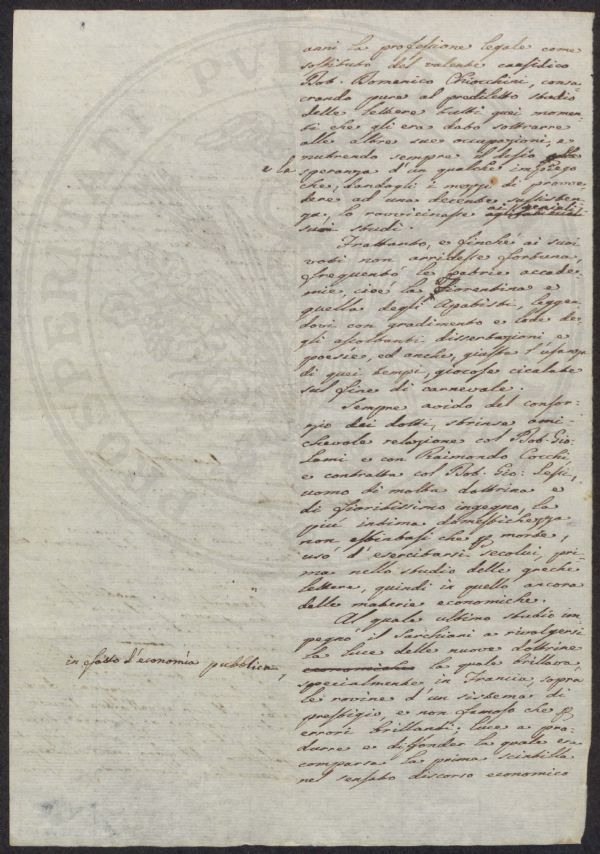 anni la professione legale come
sostituto del valente causidico
Dott. Domenico Chiocchini, consa-
crando pure al prediletto studio
delle lettere tutti quei momen-
ti che gli era dato sottrarre
alle altre sue occupazioni, e
nutrendo sempre il desio
e la
speranza d'un qualche impiego
che, dandogli i mezzi di provve-
dere ad una decente sussisten-
za, lo ravvicinasse ai geniali
suoi studi.
Frattanto, e finchè ai suoi
voti non arridesse fortuna,
frequentò le patrie accade-
mie, cioè la Fiorentina e
quella degli Apatisti, leggen-
dovi con gradimento e lode de-
gli ascoltanti dissertazioni e
poesie, ed anche, giusta l'usanza
di quei tempi, giocose cicalate
sul fine di carnevale.
Sempre avido del consor-
zio dei dotti, strinse ami-
chevole relazione col Dott. Gio:
Lami e con Raimondo Cocchi
e contratta col Dott. Gio: Sesti,
uomo di molta dottrina e
di fioritissimo ingegno, la
più intima domestichezza
non estintasi che p morte,
usò d'esercitarsi secolui, pri-
ma nello studio delle greche
lettere, quindi in quello ancora
delle materie economiche.
Al quale ultimo studio im-
pegnò il Sarchiani a rivolgersi
la luce delle nuove dottrine
in fatto d'economia pubblica,
economiche la quale brillava,
specialmente in Francia, sopra
le rovine d'un sistema di
prestigio, e non famoso che p
errori brillanti: luce a pro-
durre e diffonder la quale era
comparsa la prima scintilla
nel sensato discorso economico